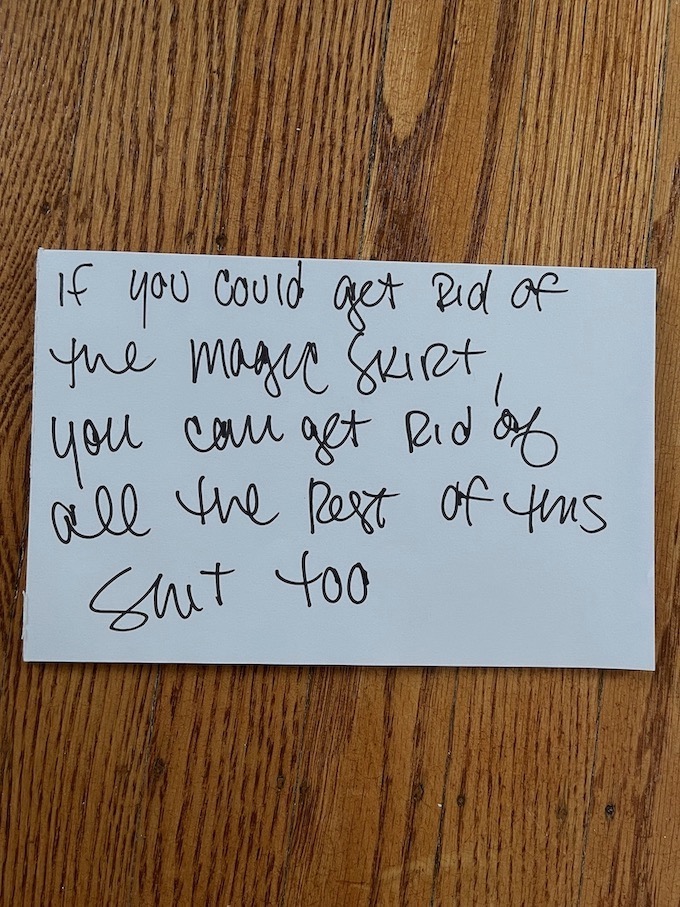 If you could get Rid of
the magic skirt,
you can get Rid of
all the Rest of this
shit too